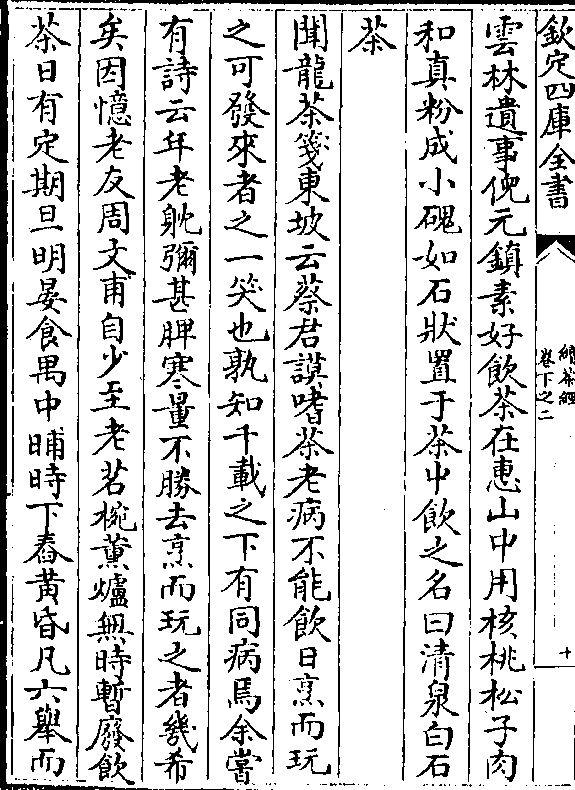 欽定四庫全書
續茶經
卷下之二
十
雲林遺事倪元鎮素好飲茶在惠山中用核桃松子肉
和真粉成小磈如石狀置于茶中飲之名曰清泉白石
茶
聞龍茶箋東坡云蔡君謨嗜茶老病不能飲日烹而玩
之可發來者之一笑也孰知千載之下有同病焉余嘗
有詩云年老躭彌甚脾寒量不勝去烹而玩之者幾希
矣因憶老友周文甫自少至老茗椀薰爐無時暫廢飲
茶日有定期旦明晏食禺中晡時下舂黃昏凡六舉而